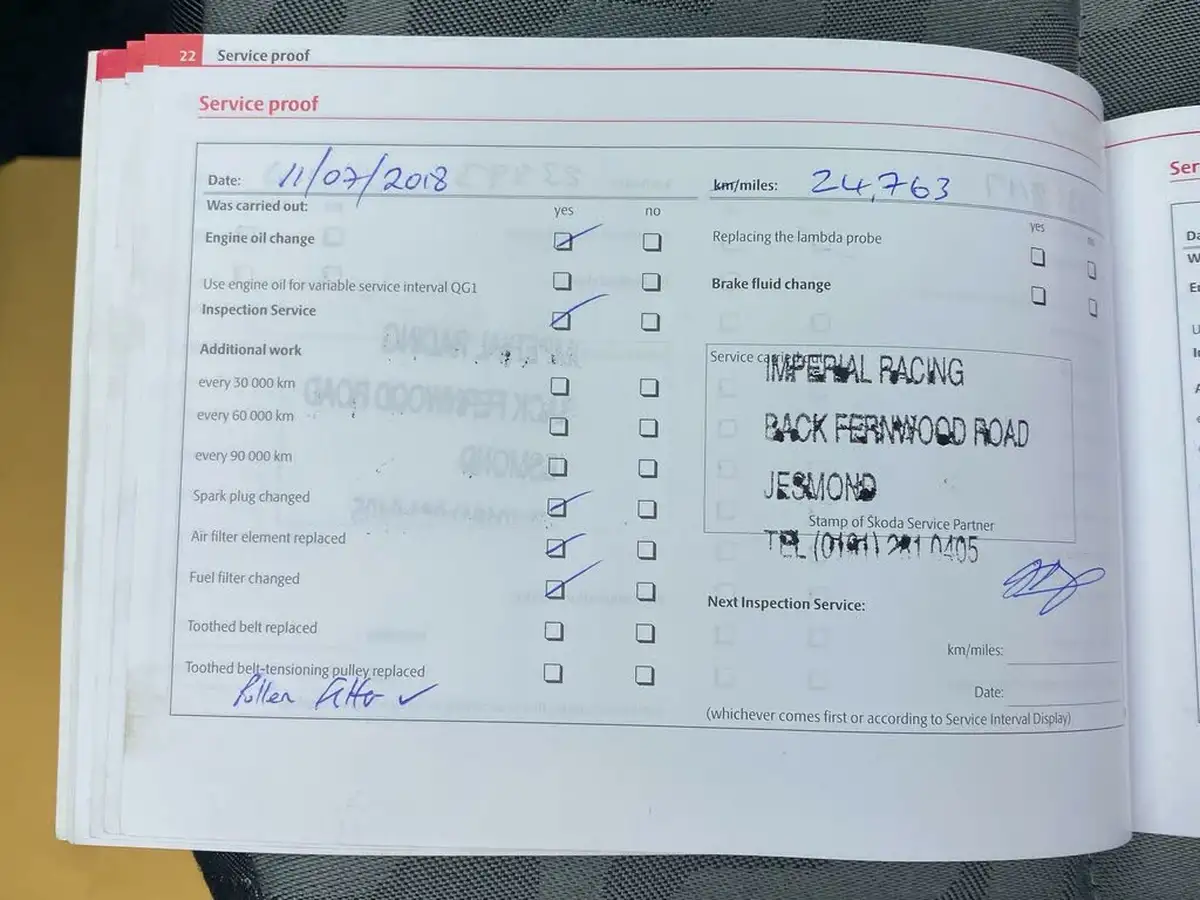 22 Service proof
Service proof
Date: 11/07/2018
km/miles: 24,763
Was carried out:
yes no
Engine oil change
Use engine oil for variable service interval QG1
Inspection Service
Additional work
every 30 000 km
every 60 000 km
every 90 000 km
Spark plug changed
Air filter element replaced
Fuel filter changed
Toothed belt replaced
Toothed belt-tensioning pulley replaced
Pollen filter ✓
yes no
Replacing the lambda probe
Brake fluid change
Service
IMPERIAL RACING
BACK FERNWOOD ROAD
JESMOND
Stamp of Skoda Service Partner
TEL (0191) 281 0405
Next Inspection Service:
km/miles:
Date:
(whichever comes first or according to Service Interval Display)
Ser
Da
W